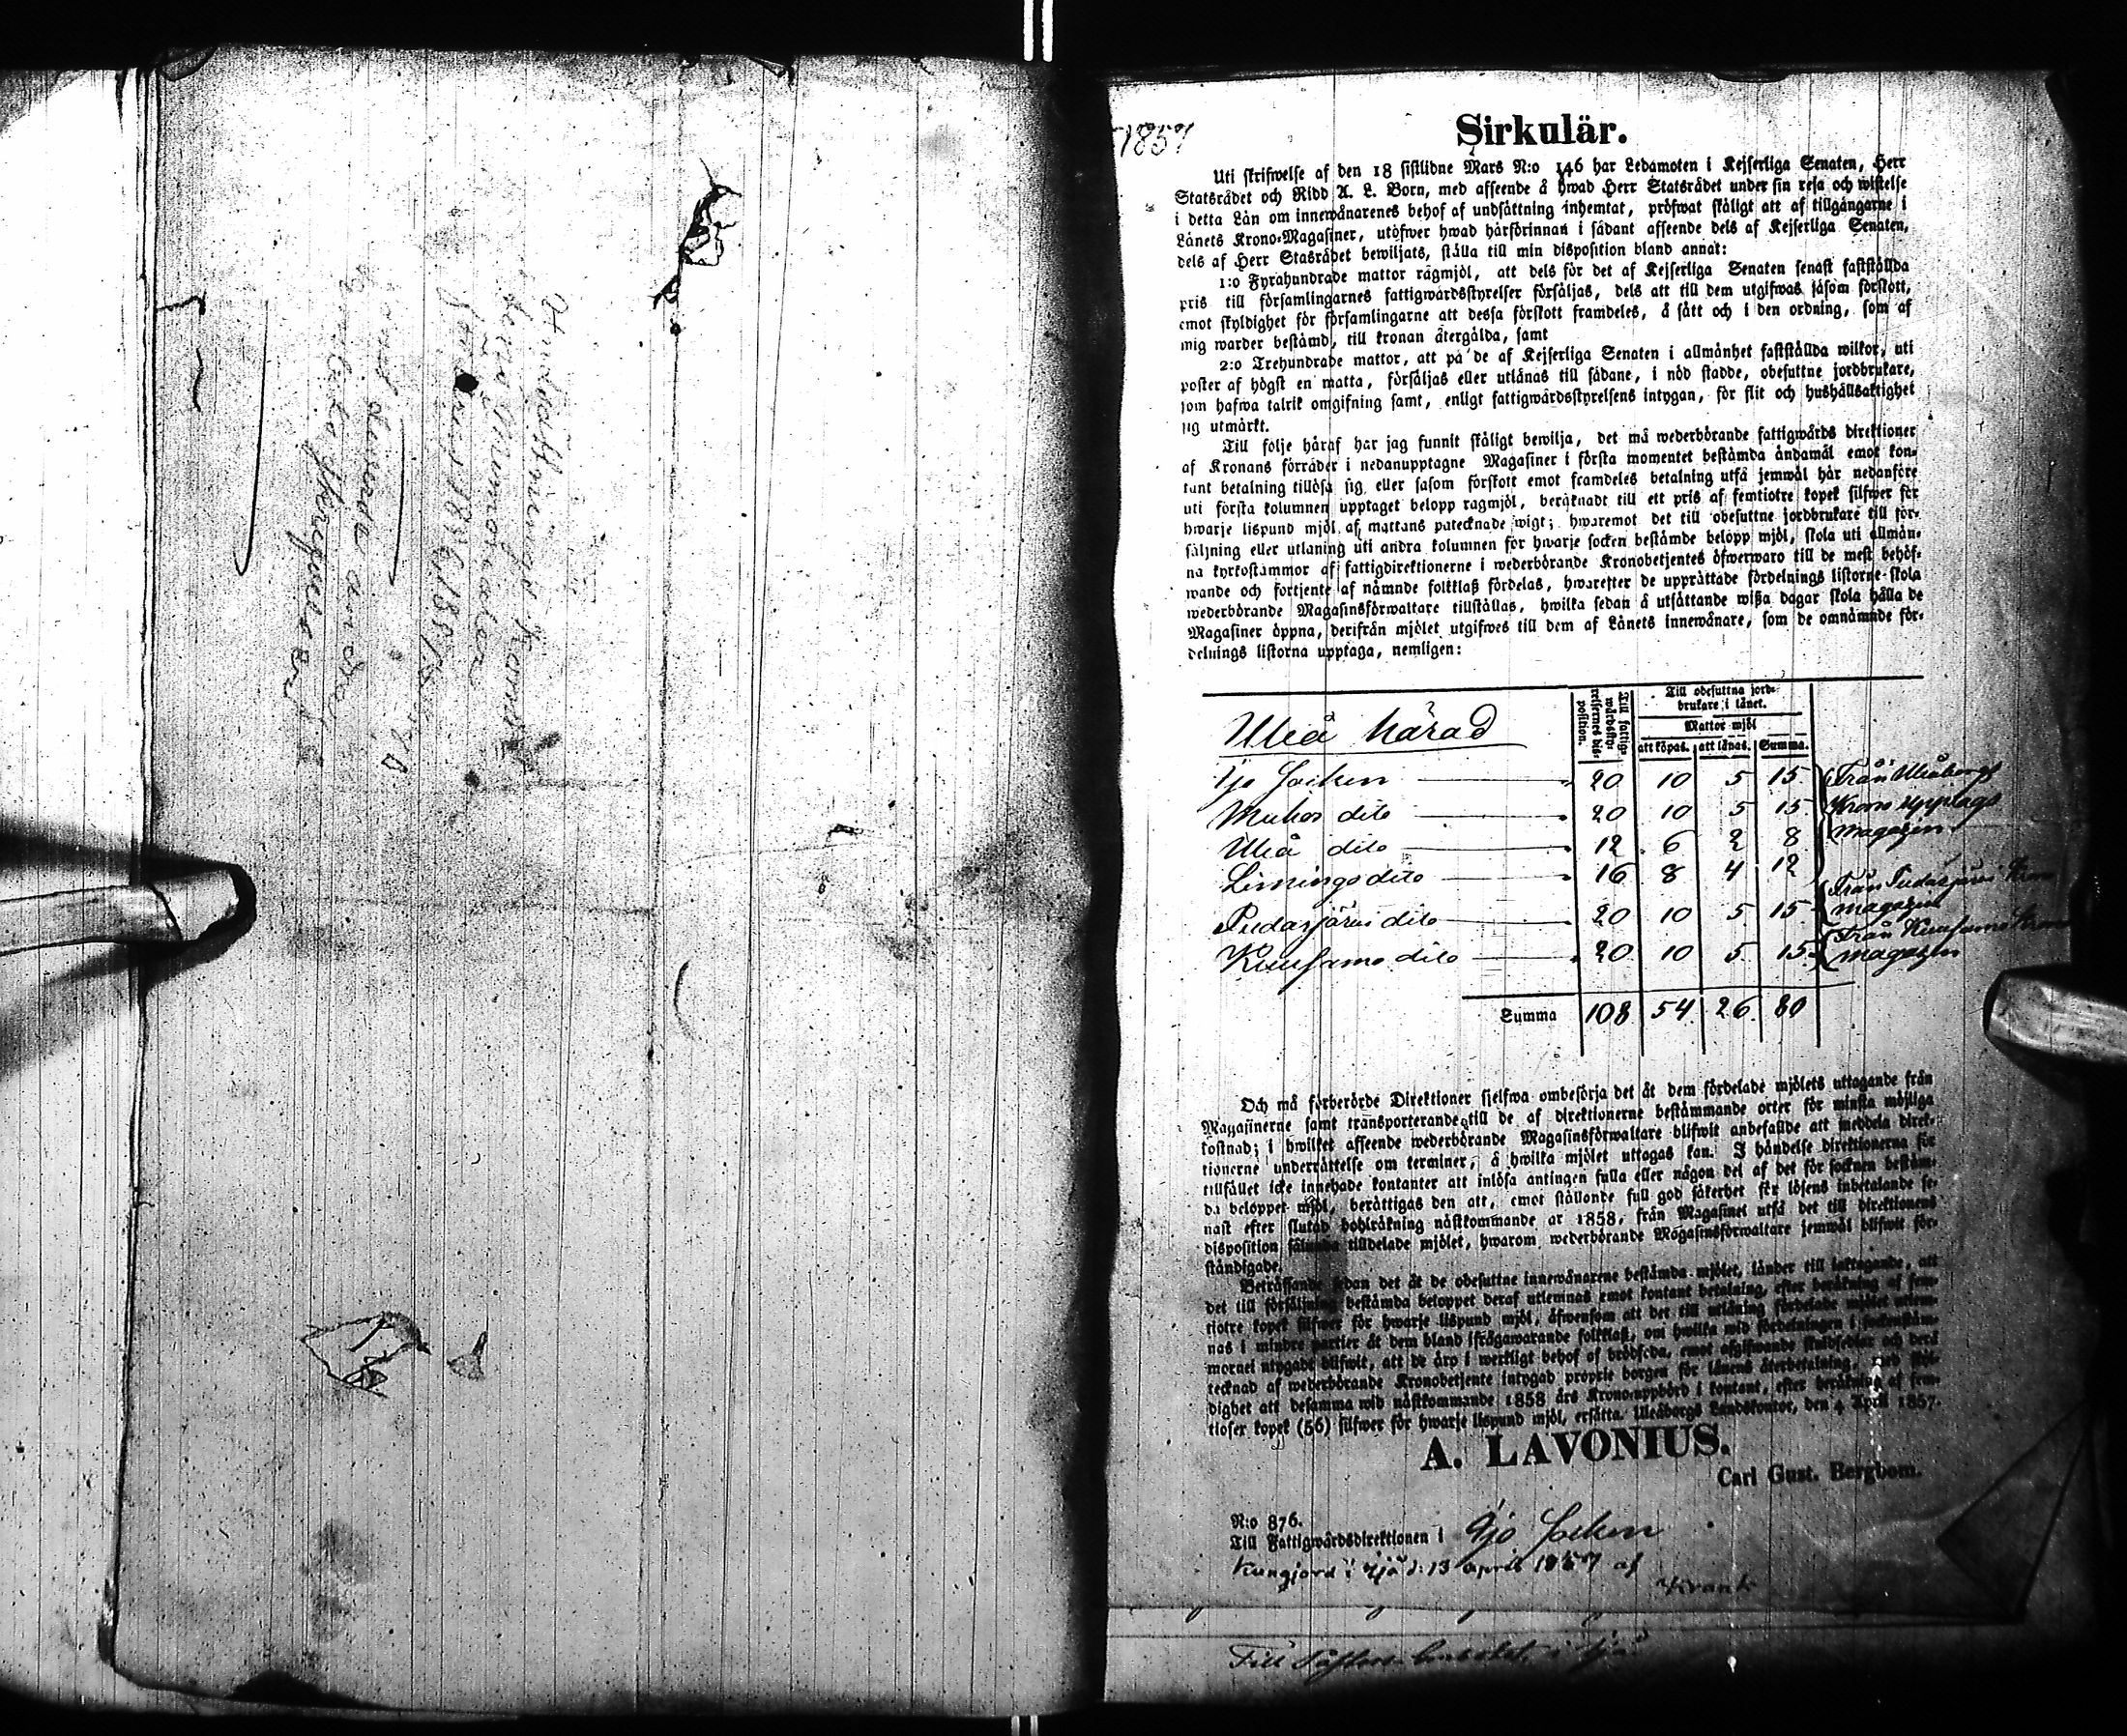 1857
Sirkulär.
Uti skrifwelse af den 18 sistlidne Mars N:o 146 har Ledamoten i Kejserliga Senaten, Herr
Statsrådet och Ridd A. L. Born, med afseende å hwad Herr Statsrådet under sin resa och wistelse
i detta Län om innewånarenes behof af undsättning inhemtat, pröfwat skäligt att af tillgångarne i
Länets Krono-Magasiner, utöfwer hwad härförinnan i sådant afseende dels af Kejserliga Senaten,
dels af Herr Stasrådet bewiljats, ställa till min disposition bland annat:
1:o Fyrahundrade mattor rågmjöl, att dels för det af Kejserliga Senaten senast fastställda
pris till församlingarnes fattigwårdsstyrelser försäljas, dels att till dem utgifwas såsom förskott,
emot skyldighet för församlingarne att dessa förskott framdeles, å sätt och i den ordning, som af
mig warder bestämd, till kronan återgälda, samt
2:o Trehundrade mattor, att på de af Kejserliga Senaten i allmänhet fastställda wilkor, uti
poster af högst en matta, försäljas eller utlånas till sådane, i nöd stadde, obesuttne jordbrukare,
som hafwa talrik omgifning samt, enligt fattigwårdsstyrelsens intygan, för flit och hushållsaktighet
sig utmärkt.
Till följe häraf har jag funnit skäligt bewilja, det må wederbörande fattigwårds direktioner
af Kronans förråder i nedanupptagne Magasiner i första momentet bestämda ändamål emot kon-
tant betalning tillösa sig eller såsom förskott emot framdeles betalning utfå jemwäl här nedanföre
uti första kolumnen upptaget belopp rågmjöl, beräknadt till ett pris af femtiotre kopek silfwer för
hwarje lispund mjöl af mattans påtecknade wigt; hwaremot det till obesuttne jordbrukare till för-
säljning eller utlåning uti andra kolumnen för hwarje socken bestämde belopp mjöl, skola uti allmän-
na kyrkostämmor af fattigdirektionerne i wederbörande Kronobetjentes öfwerwaro till de mest behöf-
wande och förtjente af nämnde folkklaß fördelas, hwarefter de upprättade fördelnings listorne skola
wederbörande Magasinsförwaltare tillställas, hwilka sedan å utsättande wißa dagar skola hålla de
Magasiner öppna, derifrån mjölet utgifwes till dem af Länets innewånare, som de omnämnde för-
delnings listorna upptaga, nemligen:
Uleå härad
Till fattig-
wårdssty-
relsernes dis-
position.
Till obesuttna jord-
brukare i länet.
Mattor mjöl
att köpas. att lånas. Summa.
Ijo Socken 20 10 5 15 Från Uleåborgs
Muhos dito 20 10 5 15 Krono Upplags
Uleå dito 12 6 2 8 magazin
Limingo dito 16 8 4 12
Pudasjärvi dito 20 10 5 15 Från Pudasjärvi Krono magazin
Kuusamo dito 20 10 5 15 Från Kuusamo Krono magazin
Summa 108 54 26 80
Och må förberörde Direktioner sjelfwa ombesörja det åt dem fördelade mjölets uttagande från
Magasinerne samt transporterande till de af direktionerne bestämmande orter för minsta möjliga
kostnad; i hwilket afseende wederbörande Magasinsförwaltare blifwit anbefallde att meddela direk-
tionerne underrättelse om terminer, å hwilka mjölet uttagas kan. I händelse direktionerna för
tillfället icke innehade kontanter att inlösa antingen fulla eller någon del af det för socknen bestäm-
da beloppet mjöl, berättigas den att, emot ställande full god säkerhet för lösens inbetalande se-
nast efter slutad boblräkning nästkommande år 1858, från Magasinet utfå det till direktionens
disposition sålunda tilldelade mjölet, hwarom wederbörande Magasinsförwaltare jemwäl blifwit för-
ständigade.
Beträffande sedan det åt de obesuttne innewånarene bestämda mjölet, länder till iakttagande, att
det till försäljning bestämda beloppet deraf utlemnas emot kontant betalning, efter beräkning af fem-
tiotre kopek silfwer för hwarje lispund mjöl, äfwensom att det till utlåning fördelade mjölet utlem-
nas i mindre partier åt dem bland ifrågawarande folkklaß, om hwilka wid fördelningen i sockenstäm-
mornel utygadt blifwit, att de äro i werkligt behof af brödföda, emot afgifwande skuldsedlar och derå
tecknad af wederbörande Kronobetjente intygad proprie borgen för lånens återbetalning, med skyl-
dighet att desamma wid nästkommande 1858 års Kronouppbörd i kontant, efter beräkning af fem-
tiosex kopek (56) silfwer för hwarje lispund mjöl, ersätta. Uleåborgs Landskontor, den 4 April 1857.
A. LAVONIUS.
Carl Gust. Bergbom.
N:o 876.
Till Fattigwårdsdirektionen i Ijo Socken
Kungjord i Ijo d: 13 april 1857 af